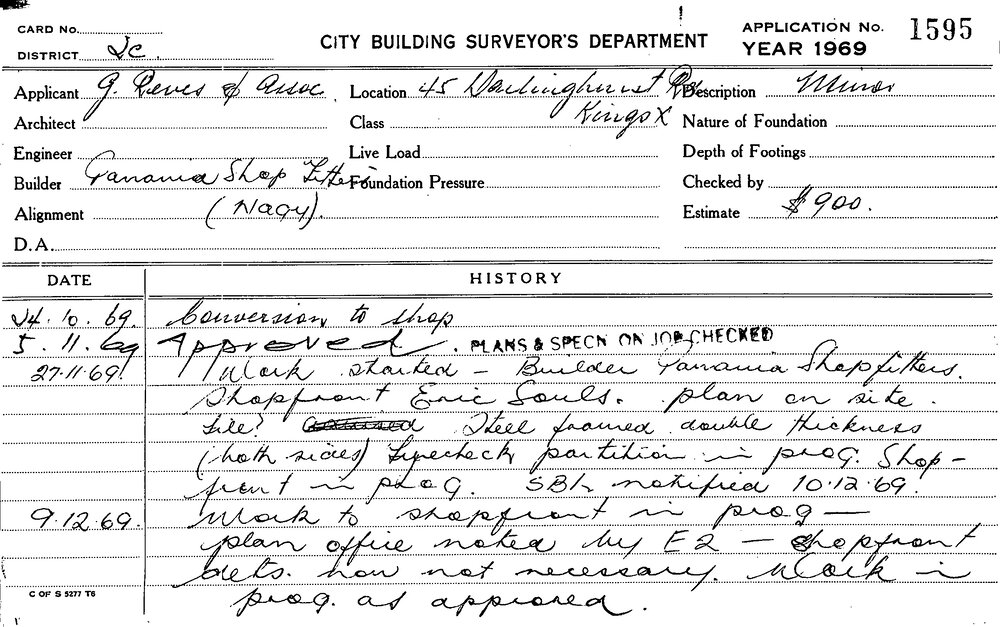 CARD No.
DISTRICT 2c.
CITY BUILDING SURVEYOR'S DEPARTMENT
APPLICATION No. 1595
YEAR 1969
Applicant G. Reves & Assoc Location 45 Darlinghurst Rd Description Minor
Kings X
Architect Class Nature of Foundation
Engineer Live Load Depth of Footings
Builder Panania Shop Fitters Foundation Pressure Checked by
Alignment (Nagy). Estimate $900.
D.A.
DATE HISTORY
24.10.69. Conversion to shop
5.11.69 Approved. PLANS & SPECN ON JOB CHECKED
27.11.69. Work started - Builder Panania Shopfitters.
Shopfront Eric Souls. plan on site.
Steel framed double thickness
(both sides) Fyrecheck partition in prog. Shop-
front in prog. notified 10.12.69.
9.12.69. Work to shopfront in prog —
plan office noted by E2 — Shopfront
dets. now not necessary. Work in
prog. as approved.
C OF S 5277 T6